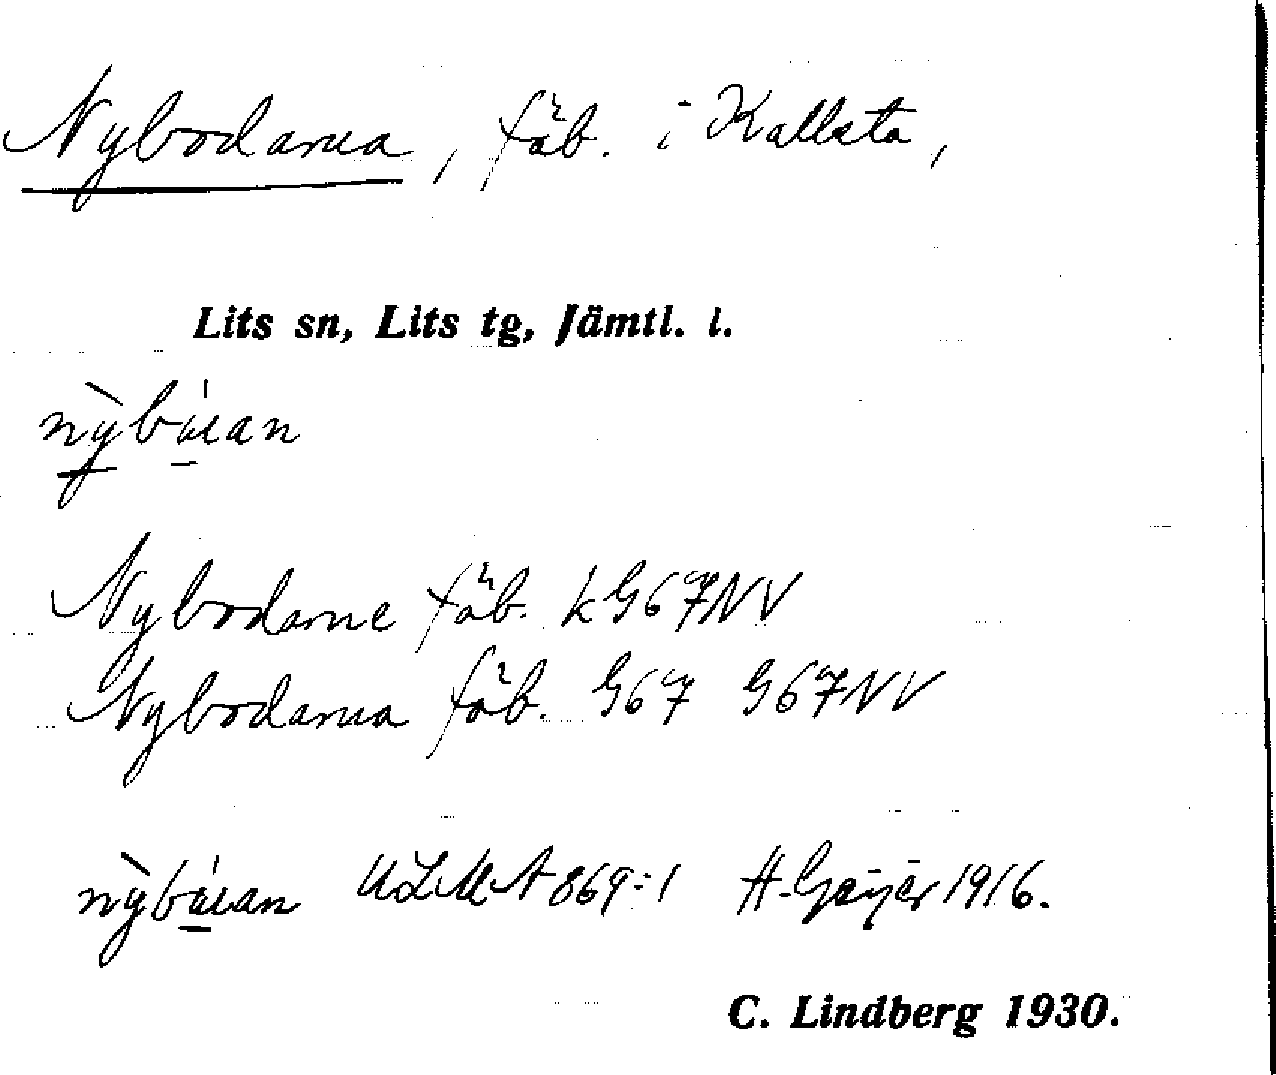 Nybodarna, fäb. i Kallsta,
Lits sn, Lits tg, Jämtl. l.
Nybodarne fäb. kG67NV
Nybodarna fäb. G67 G67NV
ULMA 869:1 H. Geijer 1916.
C. Lindberg 1930.